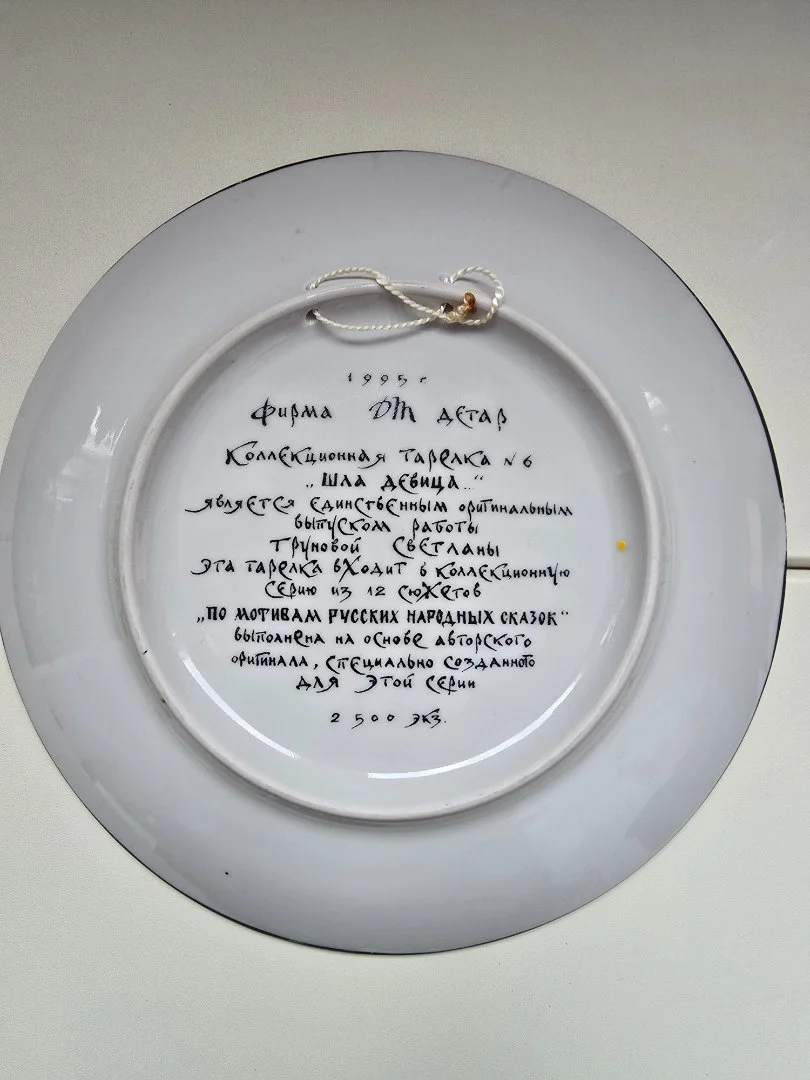 1995 г
Фирма ДТ Детар
Коллекционная тарелка № 6
„Шла девица.."
является единственным оригинальным
выпуском работы
Труновой Светланы
Эта тарелка входит в коллекционную
серию из 12 сюжетов
„ПО МОТИВАМ РУССКИХ НАРОДНЫХ СКАЗОК"
выполнена на основе авторского
оригинала, специально созданного
для этой серии
2500 экз.